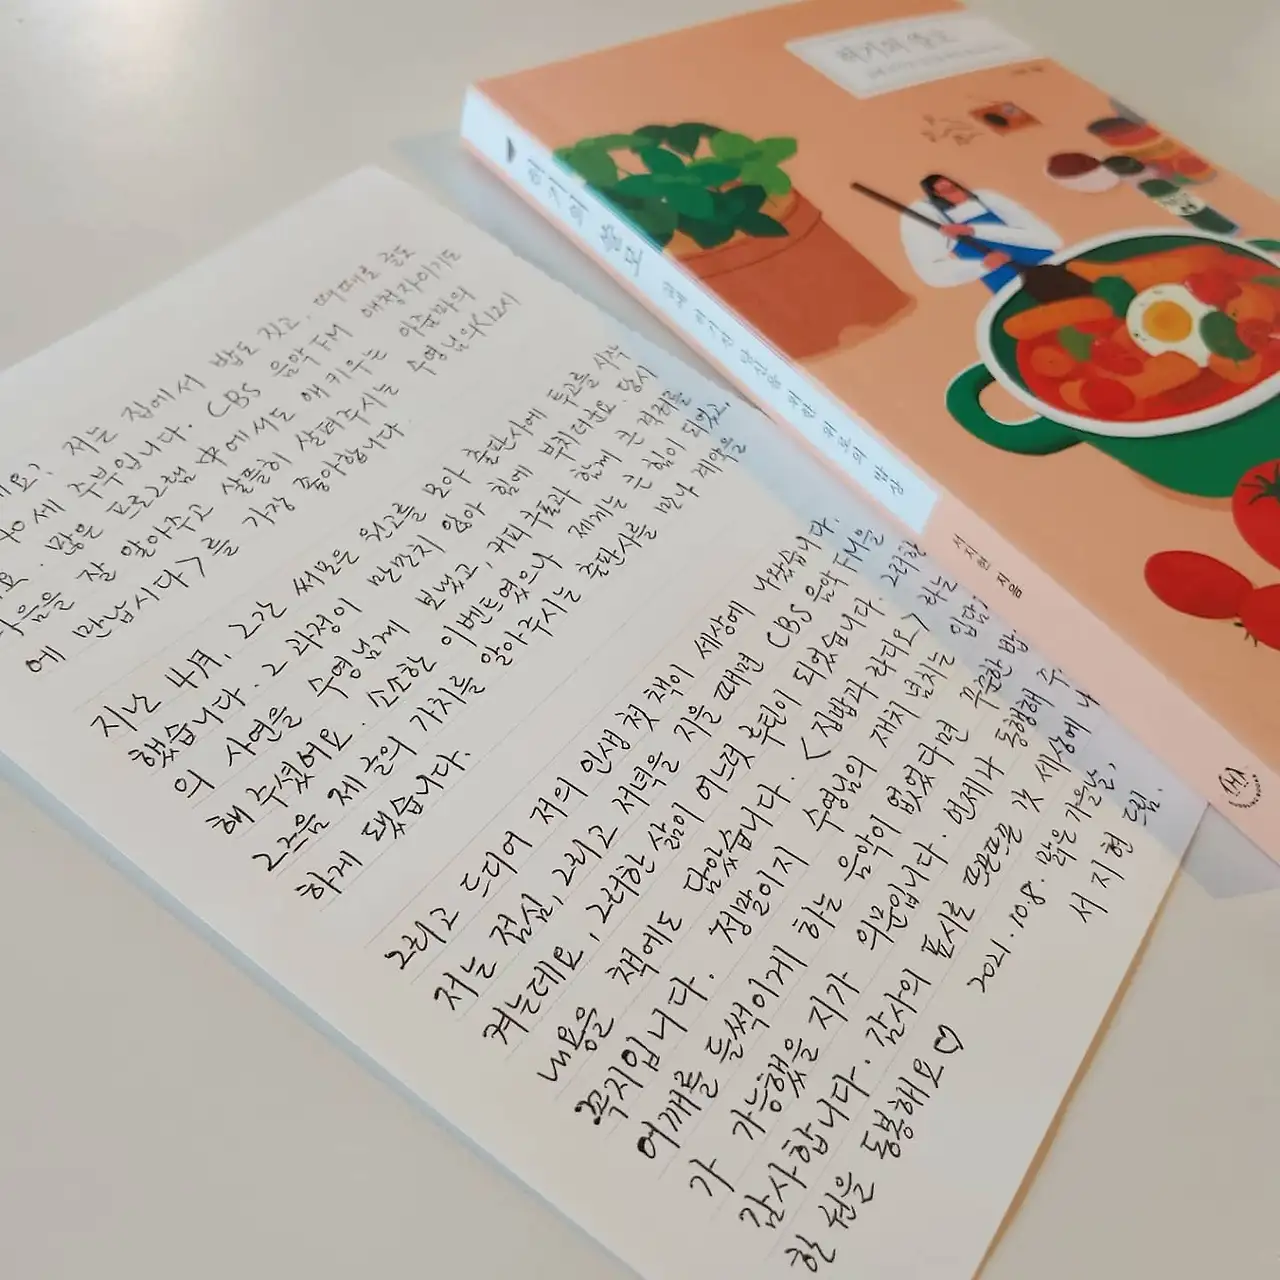 저는 집에서 밥도 짓고, 때때로 글도
40세 주부입니다. CBS 음악FM 애청자이기도
많은 프로그램 中에서도 애 키우는 아줌마의
마음을 잘 알아주고 살뜰히 살펴주시는 수영님의 <12시
에 만납시다>를 가장 좋아합니다.
지난 4月, 그간 써모은 원고를 모아 출판사에 투고를 시작
했습니다. 그 과정이 만만치 않아 힘에 부치더군요. 당시
의 사연을 수영님께 보냈고, 커피쿠폰과 함께 큰 격려를
해 주셨어요. 소소한 이벤트였으나 제게는 큰 힘이 되었고,
그즈음 제 글의 가치를 알아주시는 출판사를 만나 계약을
하게 됐습니다.
그리고 드디어 저의 인생 첫 책이 세상에 나왔습니다.
저는 점심, 그리고 저녁을 지을 때면 CBS 음악FM을
켜는데요, 그러한 삶이 어느덧 루틴이 되었습니다. 그러한
내용을 책에도 담았습니다. <집밥과 라디오>라는
꼭지입니다. 정말이지 수영님의 재치 넘치는 입담,
어깨를 들썩이게 하는 음악이 없었다면 꾸준한 밥
가 가능했을 지가 의문입니다. 언제나 동행해 주
감사합니다. 감사의 표시로 따끈따끈 갓 세상에 나
한 권을 동봉해요♡
2021.10.8. 맑은 가을날,
서지현 드림.
허기의 쓸모
허기의 쓸모
서지현 지음